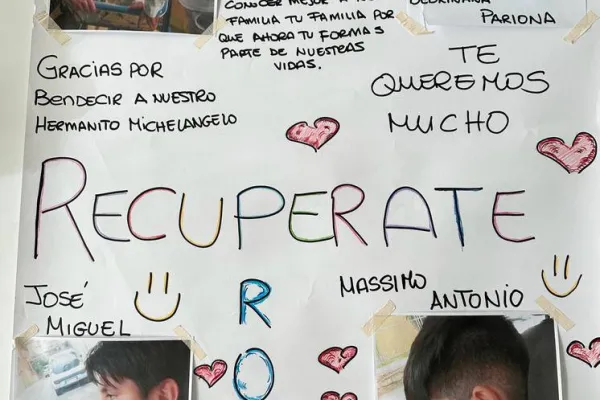 CONOCER MEJOR A
FAMILIA TU FAMILIA POR
QUE AHORA TU FORMAS
PARTE DE NUESTRAS
VIDAS.
PARIONA
GRACIAS POR
BENDECIR A NUESTRO
HERMANITO MICHELANGELO
TE
QUEREMOS
MUCHO
RECUPERATE
R
O
JOSÉ
MIGUEL
MASSIMO
ANTONIO